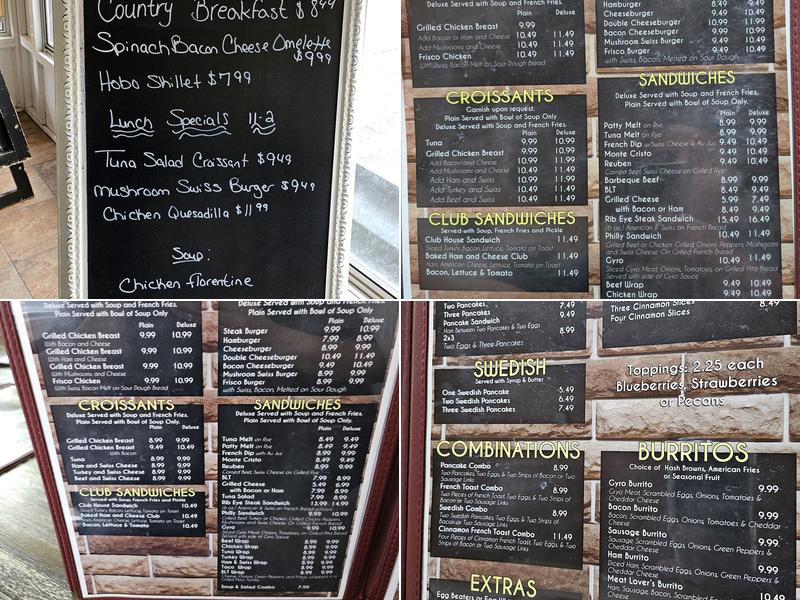 Country Breakfast $8.99
Spinach Bacon Cheese Omelette
$9.99
Hobo Skillet $7.99
Lunch Specials 11-2
Tuna Salad Croissant $9.49
mushroom Swiss Burger $9.49
Chicken Quesadilla $11.99
Soup:
Chicken florentine
Deluxe Served with Soup and French Fries.
Plain Served with Bowl of Soup Only
Plain Deluxe
Grilled Chicken Breast 9.99
Add Bacon or Ham and Cheese 10.49 11.49
Add Mushrooms and Cheese 10.49 11.49
Frisco Chicken 10.49 11.49
With Swiss, Bacon Melt on Sour Dough Bread
CROISSANTS
Garnish upon request.
Plain Served with Bowl of Soup Only
Deluxe Served with Soup and French Fries.
Plain Deluxe
Tuna 9.49 10.49
Grilled Chicken Breast 9.99 10.99
Add Bacon and Cheese 10.99 11.99
Add Mushrooms and Cheese 10.99 11.99
Add Ham and Swiss 10.49 11.49
Add Turkey and Swiss 10.49 11.49
Add Beef and Swiss 10.49 11.49
CLUB SANDWICHES
Served with Soup, French Fries and Pickle
Club House Sandwich 11.49
Sliced Turkey, Bacon, Lettuce, Tomato on Toast
Baked Ham and Cheese Club 11.49
Ham, American Cheese, Lettuce, Tomato on Toast
Bacon, Lettuce & Tomato 11.49
Hamburger 8.49 9.49
Cheeseburger 8.99 9.99
Double Cheeseburger 10.99 11.99
Bacon Cheeseburger 9.99 10.99
Mushroom Swiss Burger 9.49 10.49
Frisco Burger 9.49 10.49
with Swiss, Bacon, Melted on Sour Dough
SANDWICHES
Deluxe Served with Soup, and French Fries.
Plain Served with Bowl of Soup Only.
Plain Deluxe
Patty Melt on Rye 8.99 9.99
Tuna Melt on Rye 8.99 9.99
French Dip w/Swiss Cheese & Au Jus 9.49 10.49
Monte Cristo 9.49 10.49
Reuben 9.49 10.49
Corned Beef Swiss Cheese on Grilled Rye
Barbeque Beef 8.99 9.99
BLT 8.49 9.49
Grilled Cheese 5.99 7.49
with Bacon or Ham 8.49 9.49
Rib Eye Steak Sandwich 15.49 16.49
(6 oz.) American & Swiss on French Bread
Philly Sandwich 10.49 11.49
Grilled Beef or Chicken, Grilled Onions Peppers, Mushrooms
and Swiss Cheese, On Grilled French Bread
Gyro 10.49 11.49
Sliced Gyro Meat, Onions, Tomatoes, on Grilled Pita Bread
Served with side of Gyro Sauce
Beef Wrap 9.49 10.49
Chicken Wrap 9.49 10.49
Deluxe Served with Soup and French Fries.
Plain Served with Bowl of Soup Only
Plain Deluxe
Grilled Chicken Breast 9.99 10.99
With Bacon and Cheese
Grilled Chicken Breast 9.99 10.99
With Ham and Cheese
Grilled Chicken Breast 9.99 10.99
With Mushrooms and Cheese
Frisco Chicken 9.99 10.99
With Swiss, Bacon Melt on Sour Dough Bread
CROISSANTS
Deluxe Served with Soup and French Fries.
Plain Served with Bowl of Soup Only
Plain Deluxe
Grilled Chicken Breast 8.99 9.99
Grilled Chicken Breast 9.49 10.49
With Bacon
Tuna 8.99 9.99
Ham and Swiss Cheese 8.99 9.99
Turkey and Swiss Cheese 8.99 9.99
Beef and Swiss Cheese 8.99 9.99
CLUB SANDWICHES
Served with Soup, French Fries and Pickle
Club House Sandwich 10.49
Sliced Turkey, Bacon, Lettuce, Tomato on Toast
Baked Ham and Cheese Club 10.49
Ham, American Cheese, Lettuce, Tomato on Toast
Bacon, Lettuce & Tomato 10.49
Deluxe Served with Soup and French Fries.
Plain Served with Bowl of Soup Only
Plain Deluxe
Steak Burger 9.99 10.99
Hamburger 7.99 8.99
Cheeseburger 8.99 9.99
Double Cheeseburger 10.49 11.49
Bacon Cheeseburger 9.49 10.49
Mushroom Swiss Burger 8.99 9.99
Frisco Burger 8.99 9.99
with Swiss, Bacon, Melted on Sour Dough
SANDWICHES
Deluxe Served with Soup, and French Fries.
Plain Served with Bowl of Soup Only.
Plain Deluxe
Tuna Melt on Rye 8.49 9.49
Patty Melt on Rye 8.49 9.49
French Dip with Au Jus 8.99 9.99
Monte Cristo 8.49 9.49
Reuben 8.99 9.99
Corned Beef Swiss Cheese on Grilled Rye
BLT 7.99 8.99
Grilled Cheese 5.49 6.99
with Bacon or Ham 7.99 8.99
Tuna Salad 7.99 8.99
Rib Eye Steak Sandwich 13.99 14.99
Philly Sandwich 9.99 10.99
Gyro 9.99 10.99
Served with side of Gyro Sauce
Beef Wrap 8.99 9.99
Chicken Wrap 8.99 9.99
Tuna Wrap 8.99 9.99
Turkey Wrap 8.99 9.99
Ham & Swiss Wrap 8.99 9.99
Taco Wrap 8.99 9.99
BLT Wrap 8.99 9.99
Soup & Salad Combo 7.99
Two Pancakes 7.49
Three Pancakes 9.49
Pancake Sandwich 8.99
Ham Between Two Pancakes & Two Eggs
2x3 8.99
Two Eggs & Three Pancakes
SWEDISH
Served with Syrup & Butter
One Swedish Pancake 5.49
Two Swedish Pancakes 6.49
Three Swedish Pancakes 7.49
COMBINATIONS
Pancake Combo 8.99
Two Pancakes, Two Eggs & Two Strips of Bacon or Two
Sausage Links
French Toast Combo 8.99
Two Pieces of French Toast, Two Eggs & Two Strips of
Bacon or Two Sausage Links
Swedish Combo 8.99
Two Swedish Pancakes, Two Eggs & Two Strips of
Bacon or Two Sausage Links
Cinnamon French Toast Combo 11.49
Four Pieces of Cinnamon French Toast, Two Eggs & Two
Strips of Bacon or Two Sausage Links
EXTRAS
Three Cinnamon Slices 8.49
Four Cinnamon Slices
Toppings: 2.25 each
Blueberries, Strawberries
or Pecans
BURRITOS
Choice of Hash Browns, American Fries
or Seasonal Fruit
Gyro Burrito 9.99
Gyro Meat, Scrambled Eggs, Onions, Tomatoes &
Cheddar Cheese
Bacon Burrito 9.99
Bacon, Scrambled Eggs, Onions, Tomatoes & Cheddar
Cheese
Sausage Burrito 9.99
Sausage Scrambled Eggs, Onions, Green Peppers &
Cheddar Cheese
Ham Burrito 9.99
Diced Ham, Scrambled Eggs, Onions, Green Peppers &
Cheddar Cheese
Meat Lover's Burrito 10.49
Ham, Sausage, Bacon,